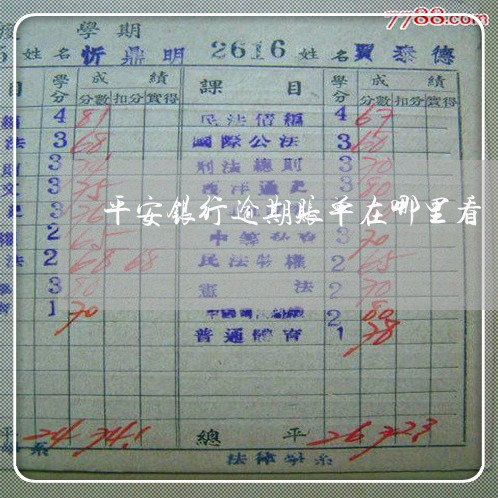 7788.com
學期
姓名 忻鼎明 2616 姓名 賈泰德
目 學分 成績 課目 學分 成績
分數 扣分 實得 分數 扣分 實得
4 81 民法債編 4 67
法 3 68 國際公法 3 60
3 刑法總則 3 70
文 3 75 西洋通史 3 80
平安银行逾期账单在哪里看
2 65 3 70
法 2 68 68 民法物權 2 65
3 80 憲法 2 70
1 70 2 80
普通體育 1 78
平 24 74.1 總平 26 72.3
系 法律學系